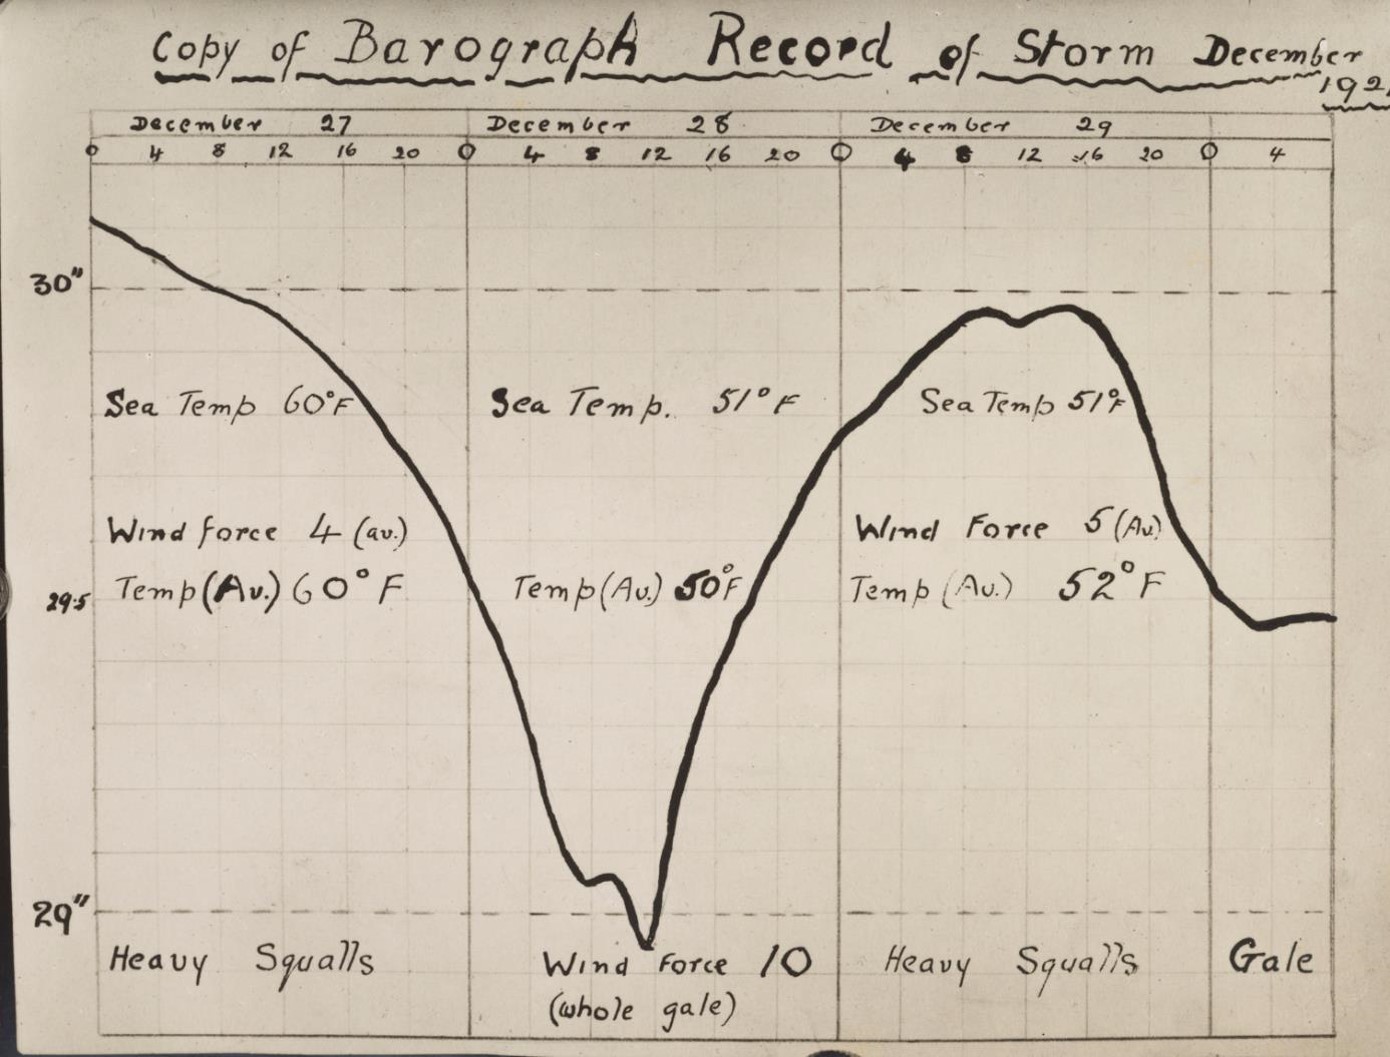 Copy of Barograph Record of Storm December
192
December 27 December 28 December 29
0 4 8 12 16 20 0 4 8 12 16 20 0 4 8 12 16 20 0 4
30"
Sea Temp 60°F Sea Temp. 51°F Sea Temp 51°F
Wind force 4 (av.) Wind Force 5 (Av.)
29.5 Temp (Av.) 60°F Temp (Av.) 50°F Temp (Av.) 52°F
29"
Heavy Squalls Wind Force 10 Heavy Squalls Gale
(whole gale)